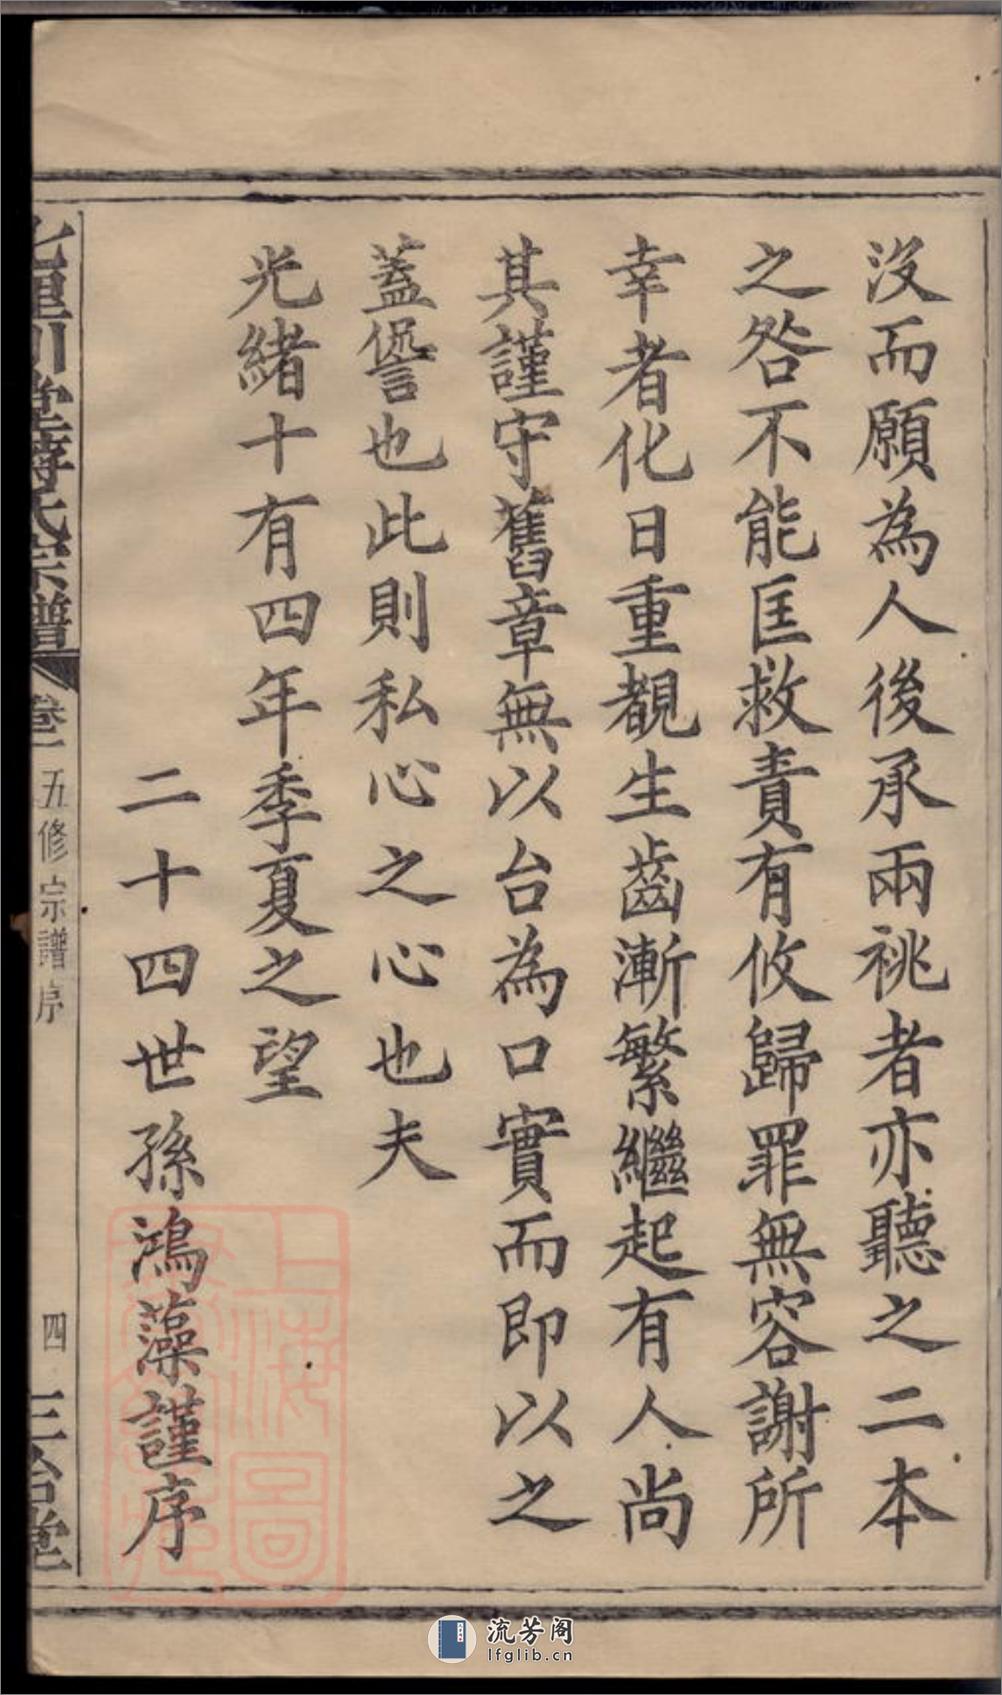 沒而願為人後承兩祧者亦聽之二本
之咎不能匡救責有攸歸罪無容謝所
幸者化日重覩生齒漸繁繼起有人尚
其謹守舊章無以台為口實而即以之
蓋愆也此則私心之心也夫
光緒十有四年季夏之望
二十四世孫鴻藻謹序
氏宗譜
卷一
五修宗譜序
四
三台堂
上海圖
流芳阁
lfglib.cn